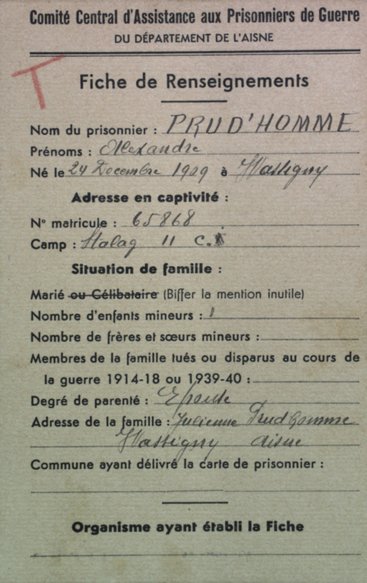 Comité Central d'Assistance aux Prisonniers de Guerre
DU DÉPARTEMENT DE L'AISNE
T
Fiche de Renseignements
Nom du prisonnier : PRUD'HOMME
Prénoms : Alexandre
Né le 24 Decembre 1909 à Wassigny
Adresse en captivité :
N° matricule : 65868
Camp : Stalag II C.
Situation de famille :
Marié ou Célibataire (Biffer la mention inutile)
Nombre d'enfants mineurs : 1
Nombre de frères et sœurs mineurs :
Membres de la famille tués ou disparus au cours de
la guerre 1914-18 ou 1939-40 :
Degré de parenté : Epouse
Adresse de la famille : Julienne Prud'homme
Wassigny Aisne
Commune ayant délivré la carte de prisonnier :
Organisme ayant établi la Fiche